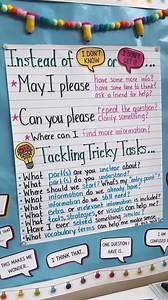 Instead of
I DON'T KNOW
I DON'T GET IT
• May I please
have some more info?
have some time to think?
ask a friend for help?
• Can you please
repeat the question?
clarify something?
• Where can I find more information?
Tackling Tricky Tasks...
• What part(s) am I unclear about?
• What part(s) do I understand?
• Where should we start? What's my "entry point"?
• What information do we already have?
• What information do we still need?
• What extra or irrelevant information is included?
• What tools, strategies, or visuals can help me?
• Have I ever solved something similar?
• What vocabulary terms can help me make sense
THIS MAKES ME WONDER...
I THINK THAT...
ONE QUESTION I HAVE IS...
I AM CONFUSED